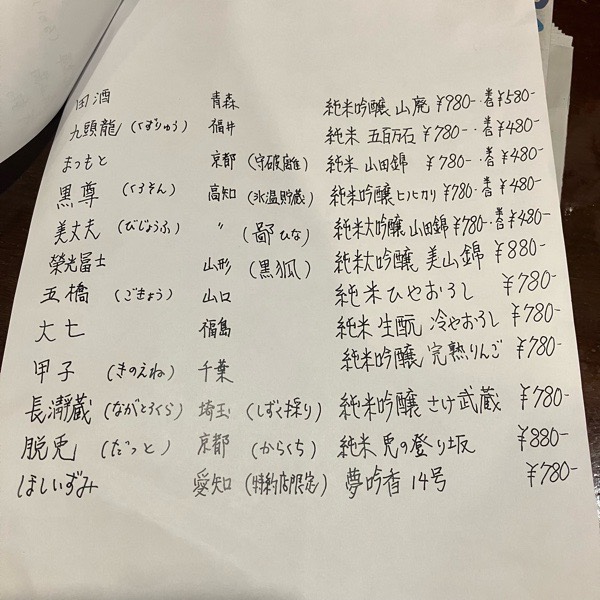 田酒 青森 純米吟醸 山廃 ¥980- 半合¥580-
九頭龍 (くずりゅう) 福井 純米 五百万石 ¥780- 半合¥480-
まつもと 京都 (守破離) 純米 山田錦 ¥780- 半合¥480-
黒尊 (くろそん) 高知 (氷温貯蔵) 純米吟醸 ヒノヒカリ ¥780- 半合¥480-
美丈夫 (びじょうふ) 〃 (鄙ひな) 純米大吟醸 山田錦 ¥780- 半合¥480-
榮光冨士 山形 (黒狐) 純米大吟醸 美山錦 ¥880-
五橋 (ごきょう) 山口 純米 ひやおろし ¥780-
大七 福島 純米 生酛 冷やおろし ¥780-
甲子 (きのえね) 千葉 純米吟醸 完熟りんご ¥780-
長瀞蔵 (ながとろくら) 埼玉 (しずく採り) 純米吟醸 さけ武蔵 ¥780-
脱兎 (だっと) 京都 (からくち) 純米 兎の登り坂 ¥880-
ほしいずみ 愛知 (特約店限定) 夢吟香 14号 ¥780-